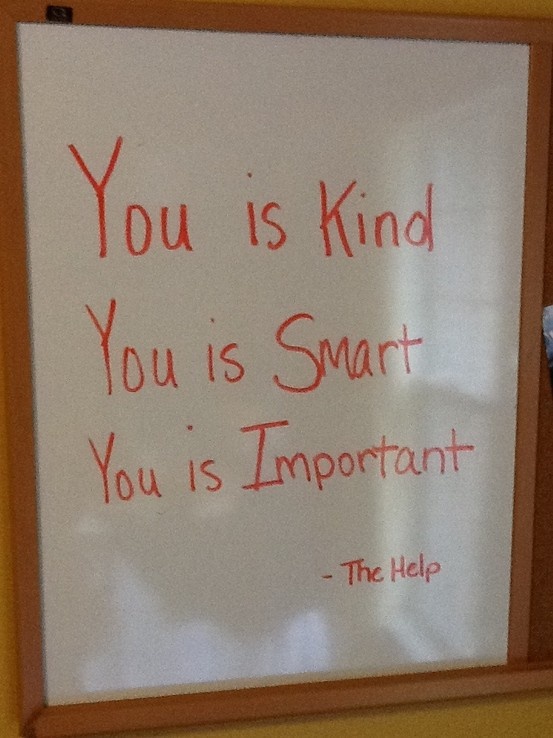 You is Kind
You is Smart
You is Important
- The Help